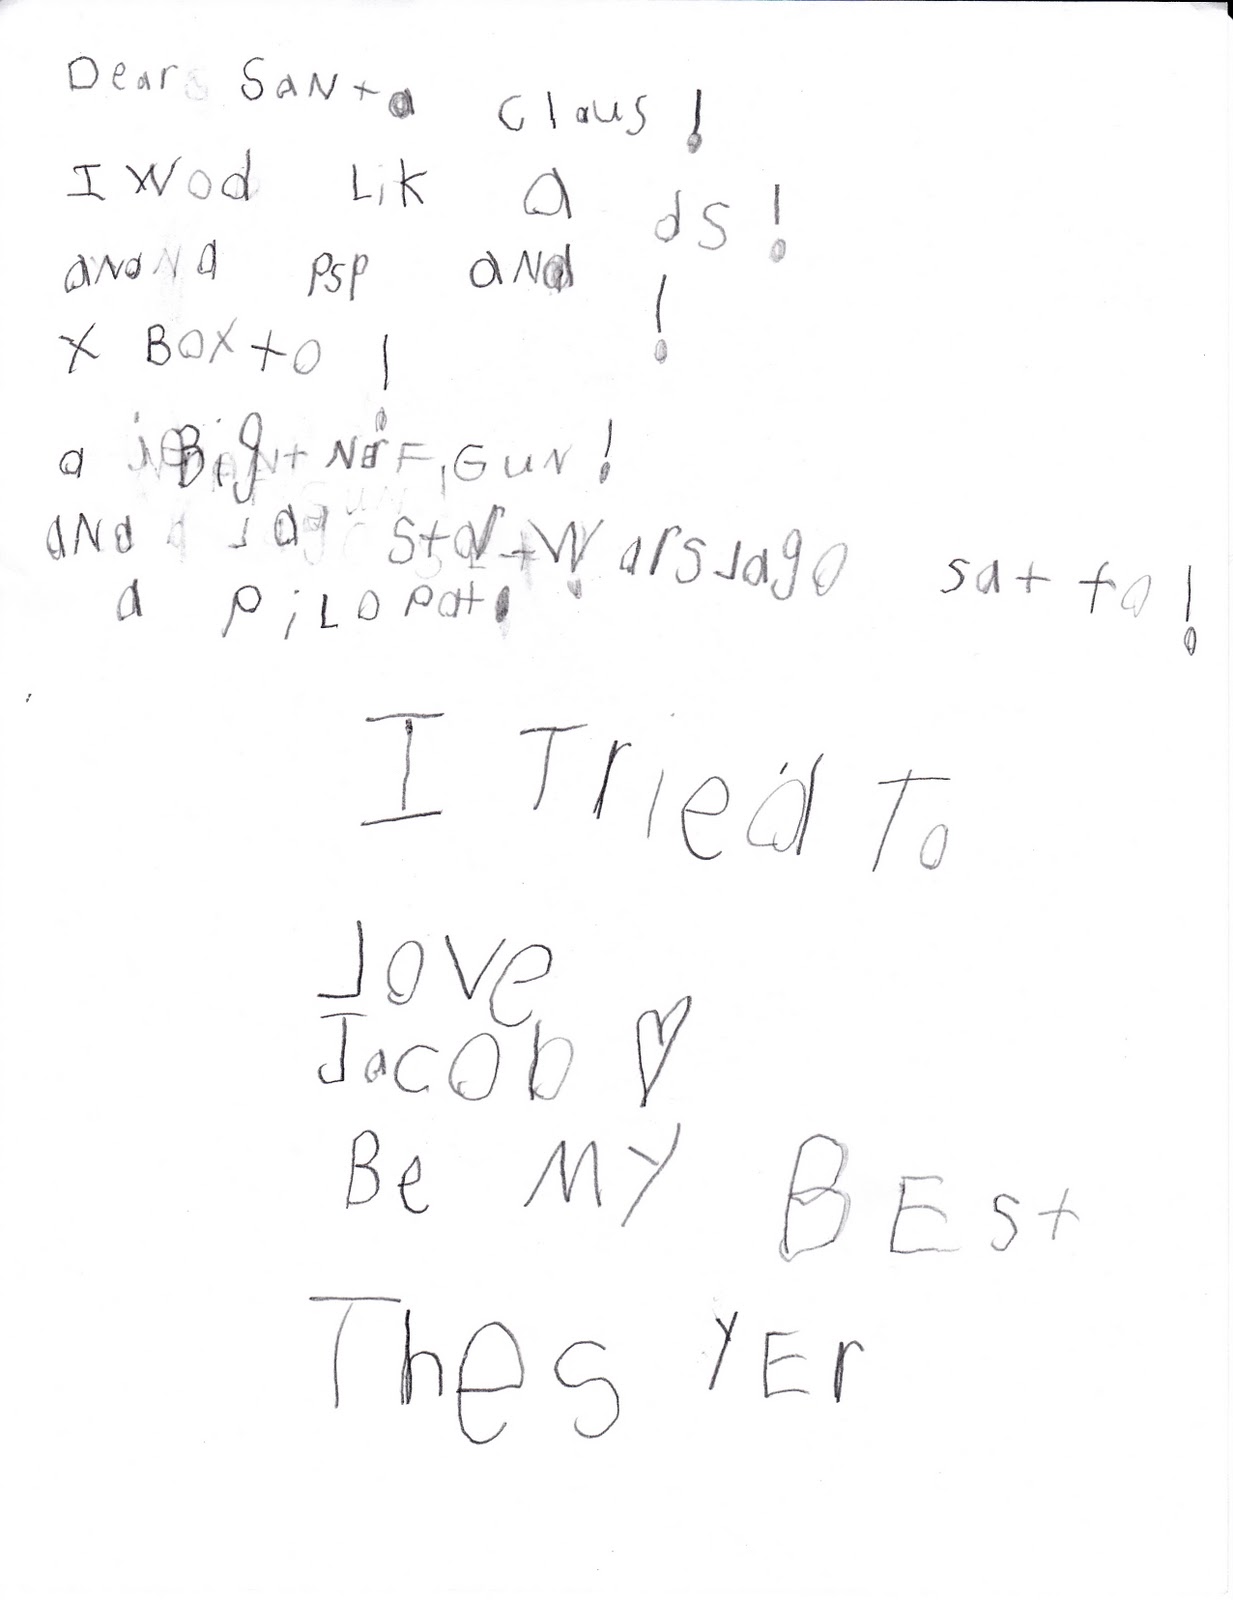 Dear SaNta Claus!
I Wod Lik a dS!
aNd a PSP aNd !
X BOX to!
a Big NerF GUN!
aNd Star Wars Lago sat to!
a PiLo Pat!
I Tried To
Love
Jacob ♡
Be MY BEst
Thes YEr